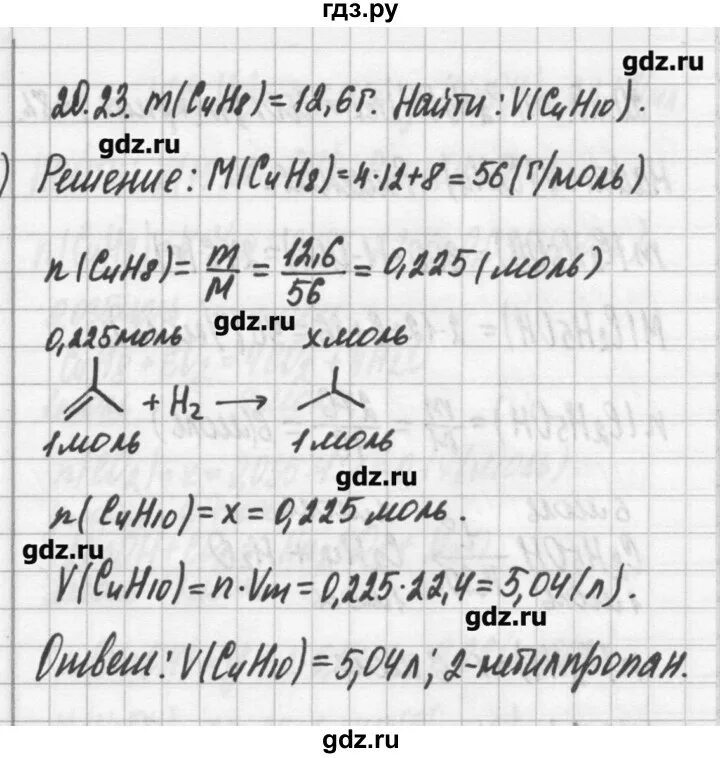 гдз.ру
gdz.ru
20.23. m(C4H8)=12,6г. Найти: V(C4H10).
gdz.ru
) Решение: M(C4H8)=4·12+8=56(г/моль)
n(C4H8)= m/M = 12,6/56 = 0,225(моль)
gdz.ru
0,225моль x моль
+ H2 →
1моль 1моль
gdz.ru
n(C4H10)=x=0,225 моль.
gdz.ru
V(C4H10)=n·Vm=0,225·22,4=5,04(л).
gdz.ru
Ответ: V(C4H10)=5,04л; 2-метилпропан.
gdz.ru